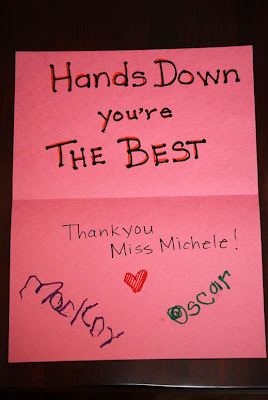 Hands Down
you're
THE BEST
Thank you
Miss Michele!
Oscar